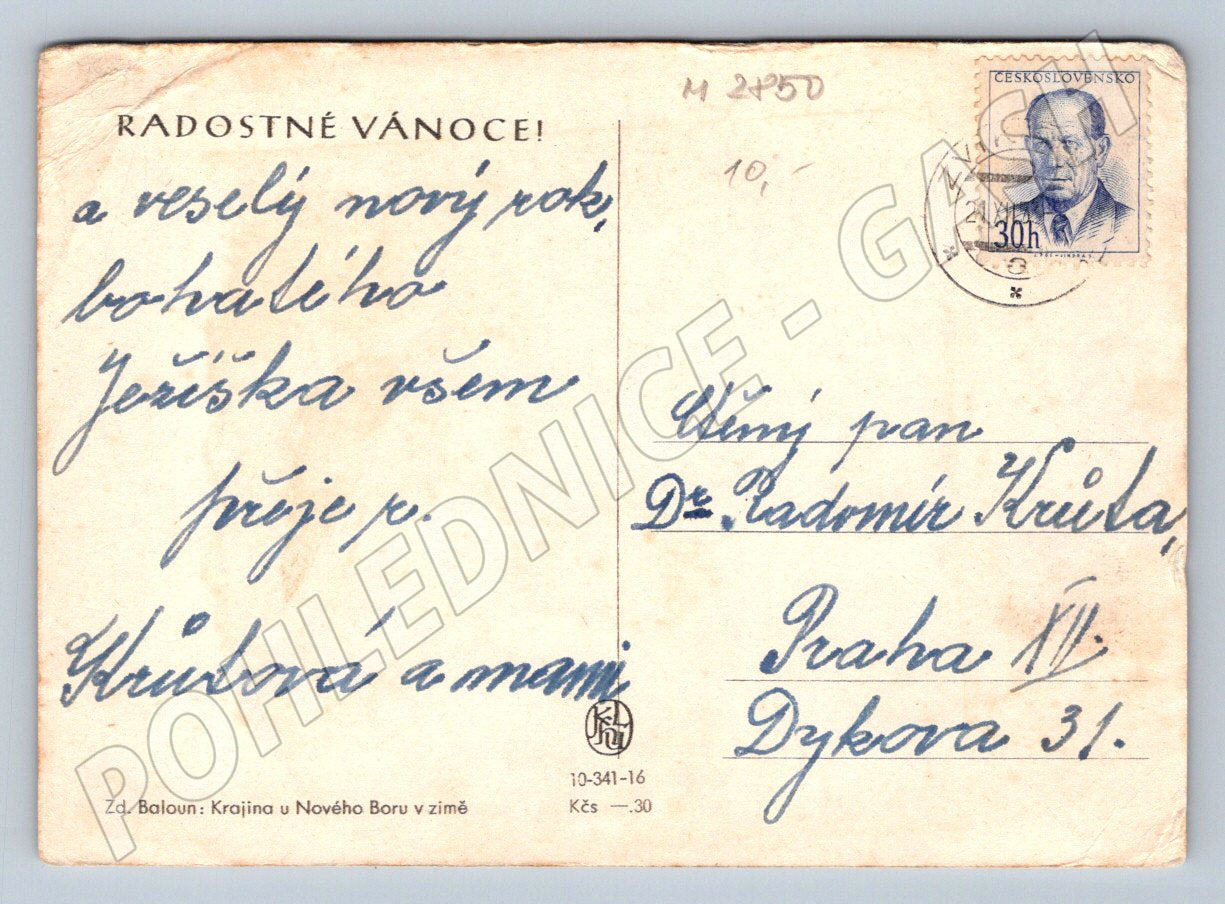 M 2850
10,-
ČESKOSLOVENSKO
30h
RADOSTNÉ VÁNOCE!
a veselý nový rok,
bohatého
Ježíška všem
přeje r.
Krůtová a mami
Ctěný pan
Dr. Radomír Krůta,
Praha XII.
Dykova 31.
10-341-16
Kčs —.30
Zd. Baloun: Krajina u Nového Boru v zimě
POHLEDNICE - GASH